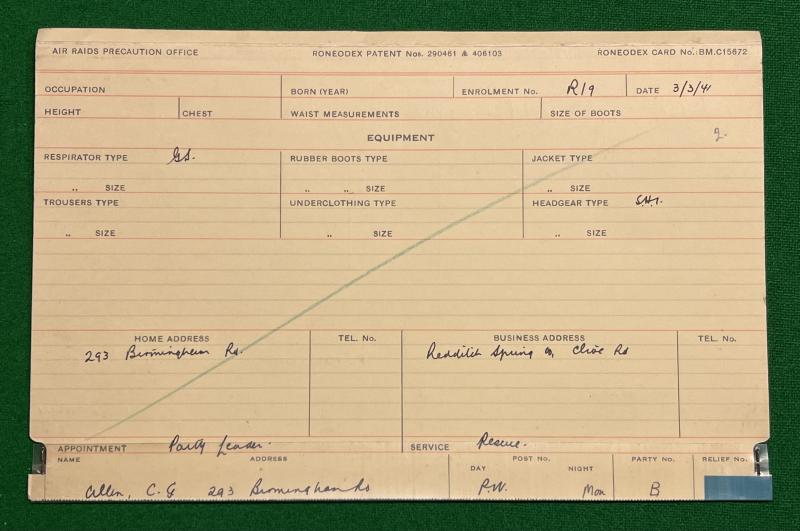 AIR RAIDS PRECAUTION OFFICE RONEODEX PATENT Nos. 290461 & 406103 RONEODEX CARD No.:BM.C15672
OCCUPATION BORN (YEAR) ENROLMENT No. R/9 DATE 3/3/41
HEIGHT CHEST WAIST MEASUREMENTS SIZE OF BOOTS
EQUIPMENT 2.
RESPIRATOR TYPE G.S. RUBBER BOOTS TYPE JACKET TYPE
„ SIZE „ „ SIZE „ SIZE
TROUSERS TYPE UNDERCLOTHING TYPE HEADGEAR TYPE S.H.1.
„ SIZE „ SIZE „ SIZE
HOME ADDRESS TEL. No. BUSINESS ADDRESS TEL. No.
293 Birmingham Rd. Redditch Spring Co, Clive Rd
APPOINTMENT Party Leader. SERVICE Rescue.
NAME ADDRESS POST No. PARTY No. RELIEF No.
DAY NIGHT
Allen, C. G 293 Birmingham Rd P.W. Mon B